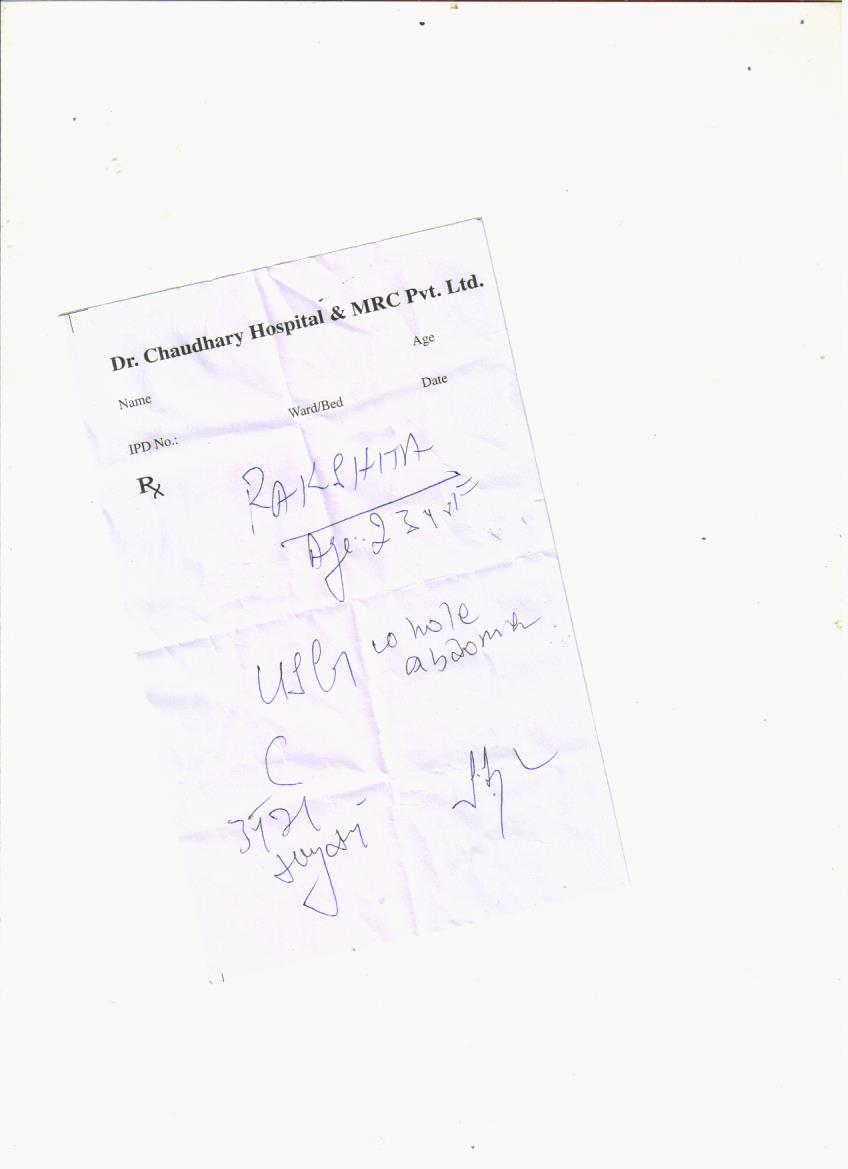 Dr. Chaudhary Hospital & MRC Pvt. Ltd.
Name Age
Ward/Bed Date
IPD No.:
Rx
RAKSHITA
Age: 23 yr
USG whole
abdomen
C